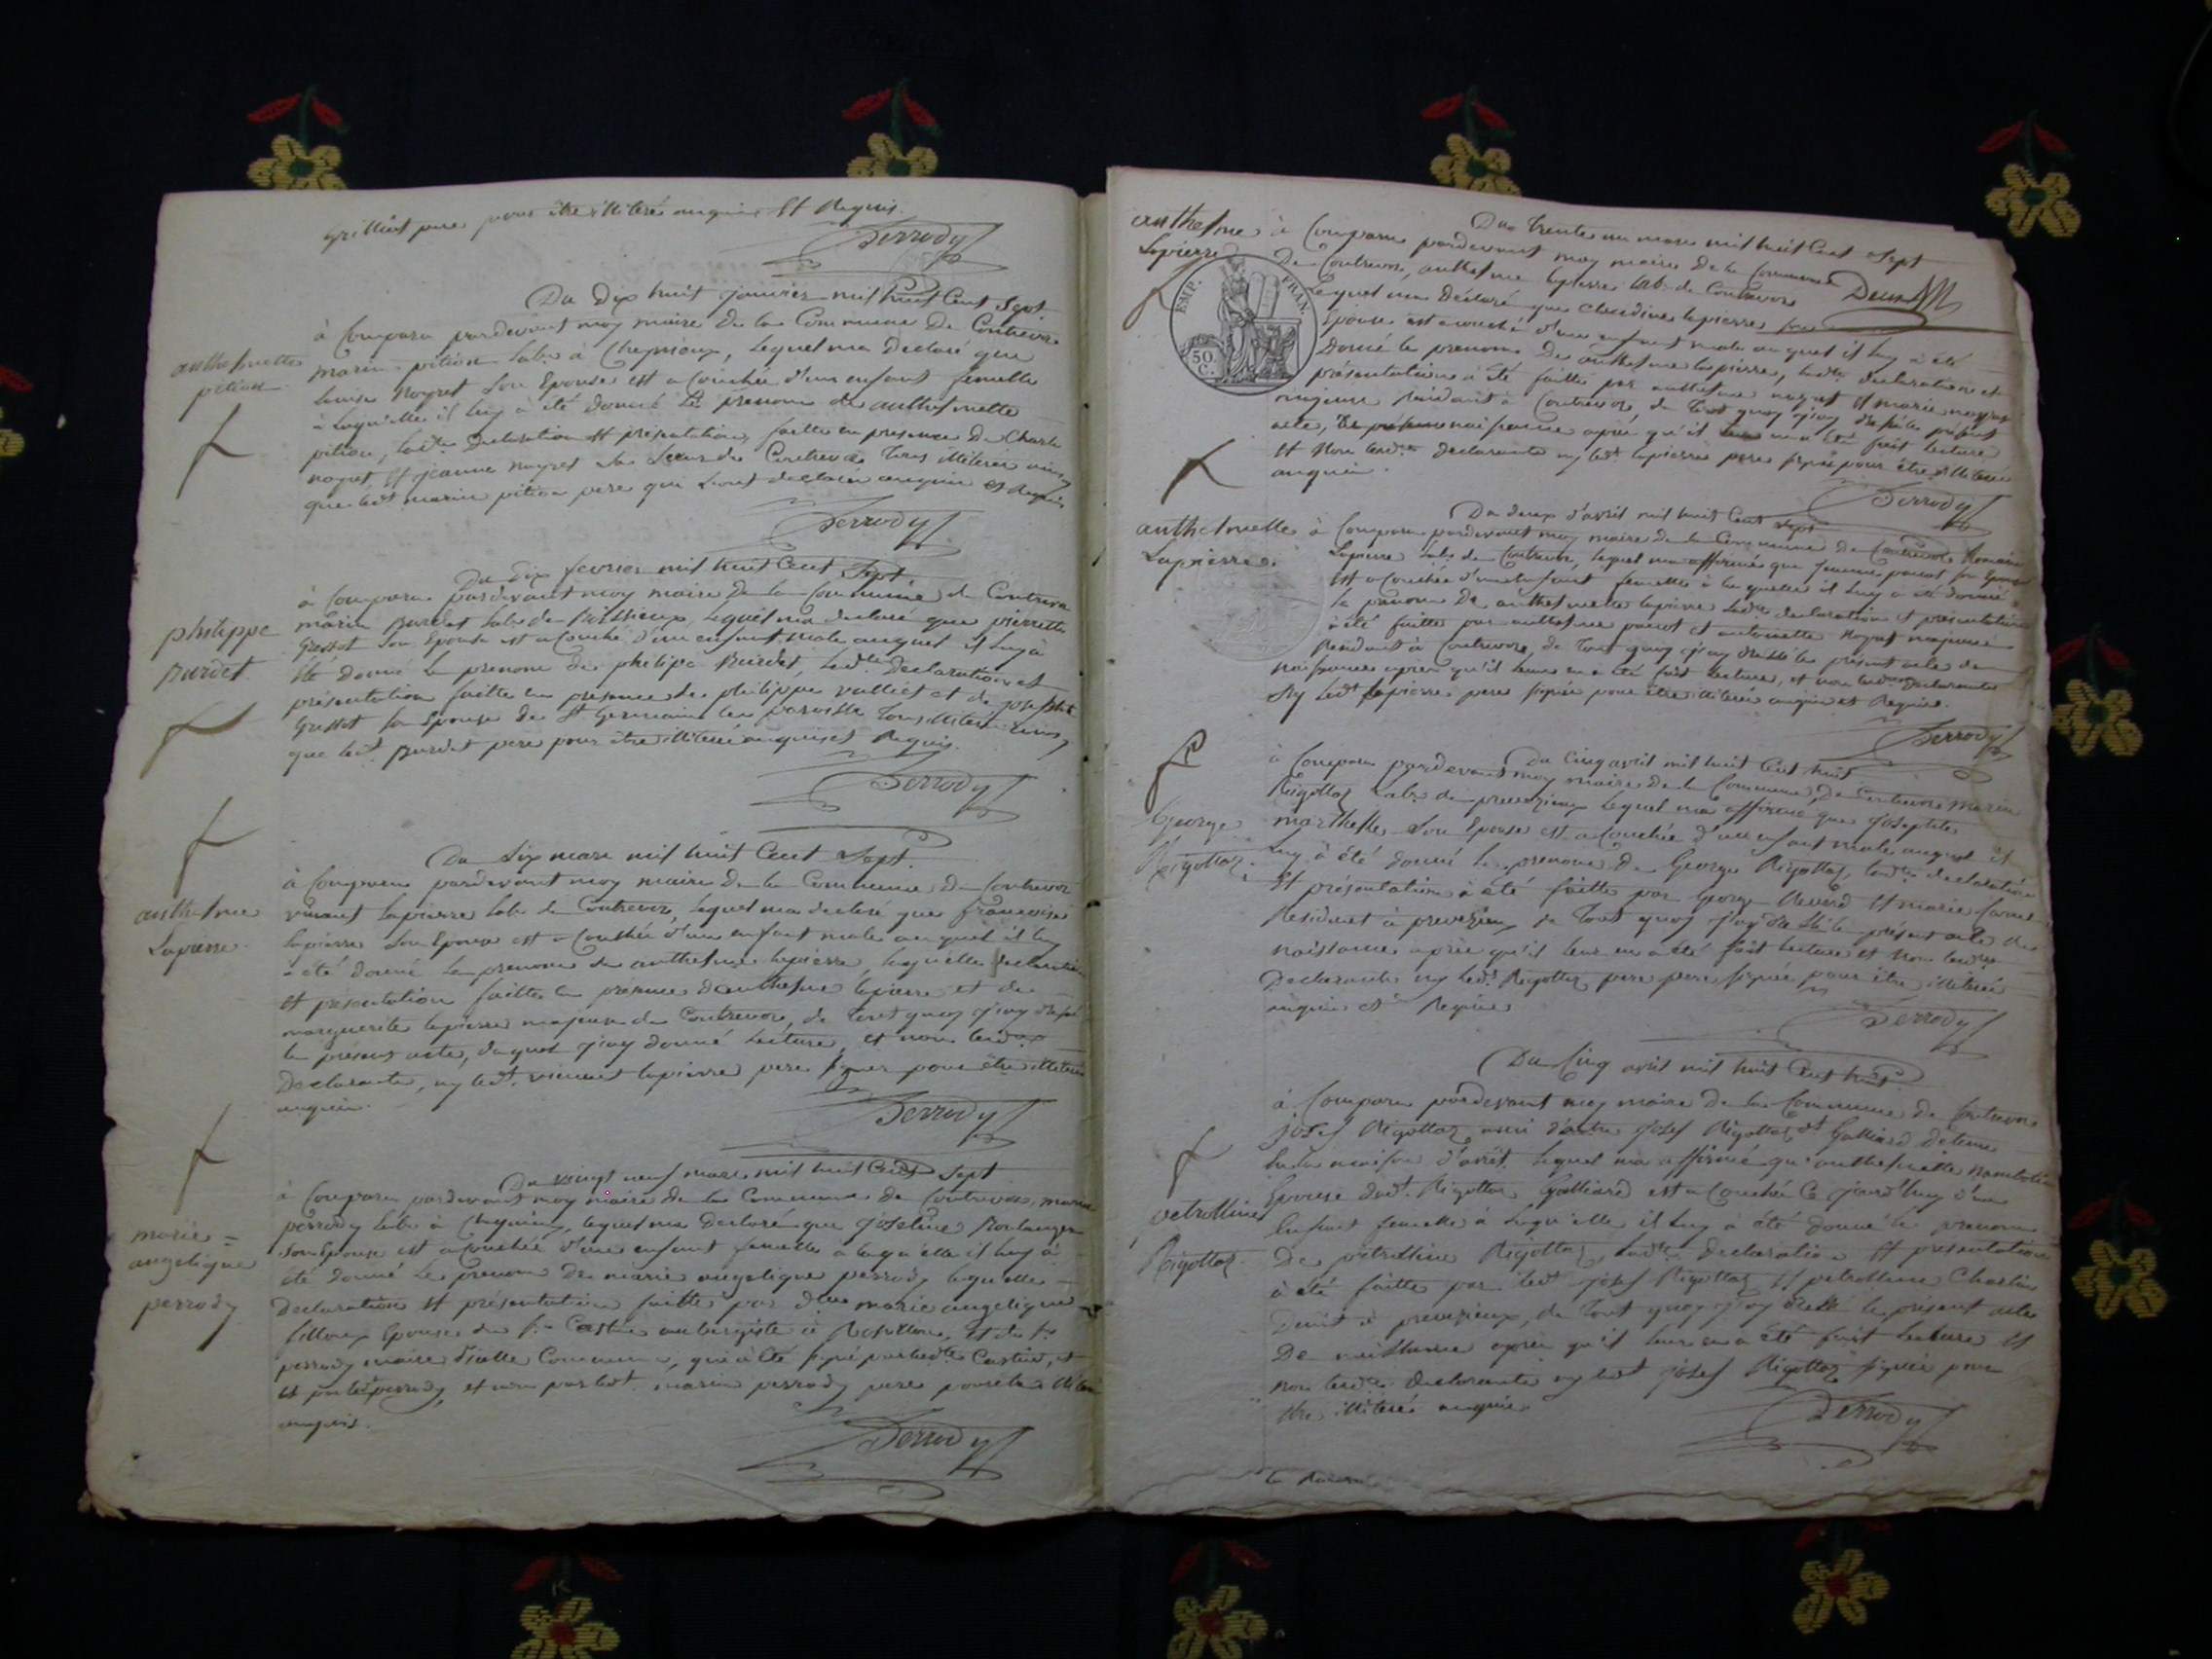 grilliet pere pour être illiteré enquis et Requis.
Perrody
Du Dix huit janvier mil huit Cent Sept.
à Comparu pardevant moy maire De la Commune De Contrevoz
anthelmette
marin pition lab. à Cheignieux, lequel ma Declaré que
pition
louise Noyret son Epouse est acouchée d'une enfant femelle
à laquelle il luy à été donné le prenom de anthelmette
pition, lad.te Declaration et présentation, faitte en presence De Charle
noyret, et jeanne noyret sa soeur de Contrevoz tous illiteré
que led.t marin pition pere qui l'ont declaré enquis et Requis
Perrody
Du dix fevrier mil huit Cent Sept
à Comparu pardevant moy maire De la Commune de Contrevoz
philippe
marin Burdet lab. de lequel ma declaré que pierrette
Burdet.
Grossot son Epouse est acouché d'un enfant male auquel il luy à
été donné le prenom de philipe Burdet, lad.te Declaration et
présentation faitte en presence de philippe valliet et de josephte
Grossot son Epouse de St Germain les paroisse tous illiteré
que led.t Burdet pere pour être illiteré enquis et Requis.
Perrody
Du Six mars mil huit Cent Sept.
à Comparu pardevant moy maire De la Commune De Contrevoz
anthelme
vincent Lapierre lab. de Contrevoz, lequel ma declaré que françoise
Lapierre
lapierre son Epouse est acouchée d'un enfant male auquel il luy
à été donné le prenom de anthelme lapierre, laquelle declaration
et presentation faitte en presence d'anthelme lapierre et de
marguerite lapierre majeurs de Contrevoz, de tout quoy j'ay dressé
le présent acte, duquel j'ay donné lecture, et non lesd.ts
Declarants, ny led.t vincent lapierre pere signer pour être illiteré
enquis.
Perrody
Du vingt neuf mars mil huit Cent Sept
à Comparu pardevant moy maire de la Commune de Contrevoz, marin
marie =
perrody lab. à Cheignieux, lequel ma Declaré que joseline
angelique
son Epouse est acouchée d'une enfant femelle à laquelle il luy à
perrody
été donné le prenom de marie angelique perrody laquelle
declaration et présentation faitte par marie angelique
Epouse du S.r Castin aubergiste à Rossillon, et du S.r
perrody maire d'icelle Commune, qui à été signé par lad.te Castin, et
et par led.t perrody, et non par led.t marin perrody pere pour être
enquis.
Perrody
anthelme
Du trente un mars mil huit Cent Sept
Lapierre
à Comparu pardevant moy maire De la Commune
De Contrevoz, anthelme lapierre lab. de Contrevoz
EMP. FRAN.
50 C.
lequel ma Déclaré que claudine lapierre son
Epouse est acouché d'un enfant male auquel il luy à été
Donné le prenom De anthelme lapierre, lad.te declaration et
présentation à été faitte par anthelme noyret et marie noyret
majeurs Residant à Contrevoz, de tout quoy j'ay dressé le présent
acte, De naissance après qu'il leur en à été fait lecture
et Non lesd.ts declarants ny led.t lapierre pere signé pour être illiteré
enquis.
Perrody
Du deux d'avril mil huit Cent Sept
anthelmette
à Comparu pardevant moy maire de la Commune De Contrevoz Romain
Lapierre.
Lapierre lab. de Contrevoz, lequel ma affirmé que jeanne son Epouse
est acouchée d'une enfant femelle à laquelle il luy à été donné
le prenom De anthelmette lapierre lad.te declaration et présentation
à été faitte par anthelme et antoinette Noyret majeurs
Residant à Contrevoz, de tout quoy j'ay dressé le présent acte de
naissance après qu'il leur en à été fait lecture, et non lesd.ts Declarants
ny led.t lapierre pere signer pour être illiteré enquis et Requis.
Perrody
Du Cinq avril mil huit Cent huit
à Comparu pardevant moy maire de la Commune, De Contrevoz marin
Rigottaz lab. de preveyzieux lequel ma affirmé que josephte
George
marthelle son Epouse est acouchée d'un enfant male auquel il
Rigottaz.
luy à été donné le prenom De George Rigottaz, lad.te déclaration
et présentation à été faitte par George Reverd et marie
Residant à preveyzieux, de tout quoy j'ay dressé le présent acte de
naissance après qu'il leur en à été fait lecture et Non lesd.ts
Declarants ny led.t Rigottaz pere signé pour être illiteré
enquis et Requis
Perrody
Du Cinq avril mil huit Cent huit
à Comparu pardevant moy maire De la Commune de Contrevoz
josef Rigottaz josef Rigottaz dt Galliard détenu
en la maison d'arrêt, lequel ma affirmé qu'anthelmette
petrolline
Epouse dud.t Rigottaz Galliard est acouchée Ce jourd'huy d'un
Rigottaz
Enfant femelle à laquelle il luy à été donné le prenom
De petrolline Rigottaz, lad.te declaration et presentation
à été faitte par led.t josef Rigottaz et petrolline Charlin
à preveyzieux, de tout quoy j'ay dressé le présent acte
De naissance après qu'il leur en à été fait lecture et
non lesd.ts declarants ny led.t josef Rigottaz signés pour
être illiteré enquis
Perrody